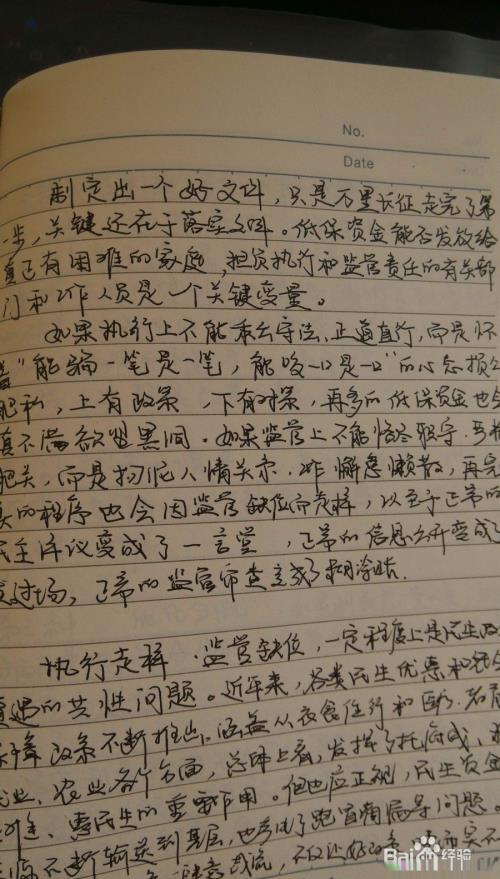 No.
Date
制定出一个好文件，只是万里长征走完了第
一步，关键还在于落实文件。低保资金能否发放给
真正有困难的家庭，担负执行和监管责任的有关部
门和工作人员是一个关键变量。
如果执行上不能秉公守法、正道直行，而是怀
着“能骗一笔是一笔，能咬一口是一口”的心态损公
肥私，上有政策，下有对策，再多的低保资金也
填不满欲壑黑洞。如果监管上不能恪尽职守、
把关，而是拘泥人情关系、工作懈怠懒散，再完
的程序也会因监管缺位而走样，以至于正常的
民主评议变成了一言堂，正常的信息公开变成
走过场，正常的监管审查变成了糊涂账。
执行走样、监管缺位，一定程度上是民生政
遭遇的共性问题。近年来，各类民生优惠和
保障政策不断推出，涵盖从衣食住行和医疗、
业、农业各个方面，总体上看，发挥了托底线、
惠民生的重要作用。但也应正视，民生资金
不断输送到基层，也考虑了跑冒滴漏等问题
截流，不仅
Baidu经验